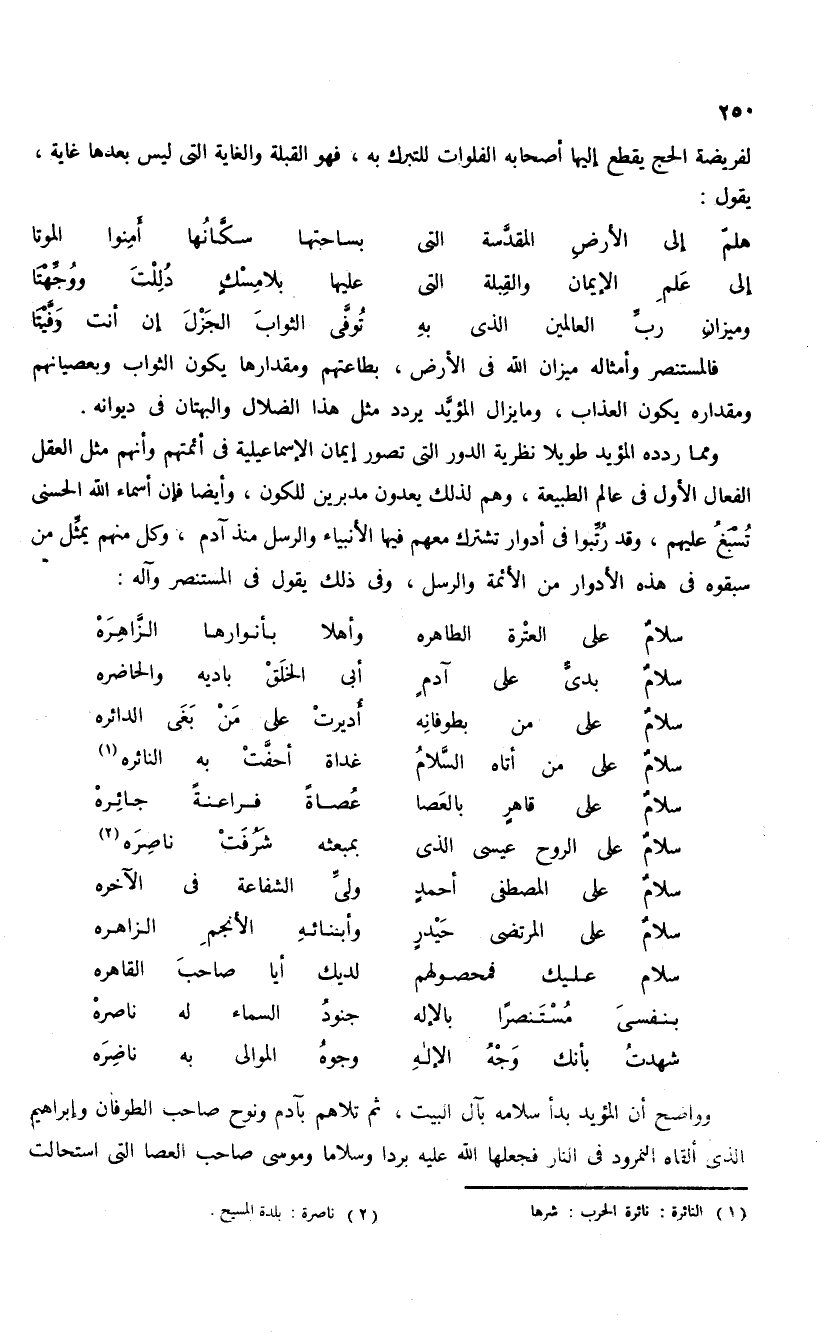 ٢٥٠
لفريضة الحج يقطع إليها أصحابه الفلوات للتبرك به ، فهو القبلة والغاية التى ليس بعدها غاية ،
يقول :
هلمّ إلى الأرضِ المقدَّسة التى بساحتها سكَّانُها أَمِنوا الموتا
إلى عَلمِ الإيمان والقِبلة التى عليها بلامِسْكٍ دُلِلْتَ ووُجِّهْتَا
وميزانِ ربِّ العالمين الذى بهِ تُوفَّى الثوابَ الجَزْلَ إن أنت وَفَّيْتَا
فالمستنصر وأمثاله ميزان الله فى الأرض ، بطاعتهم ومقدارها يكون الثواب وبعصيانهم
ومقداره يكون العذاب ، ومايزال المؤيَّد يردد مثل هذا الضلال والبهتان فى ديوانه .
ومما ردده المؤيد طويلا نظرية الدور التى تصور إيمان الإسماعيلية فى أئمتهم وأنهم مثل العقل
الفعال الأول فى عالم الطبيعة ، وهم لذلك يعدون مدبرين للكون ، وأيضا فإن أسماء الله الحسنى
تُسْبَغُ عليهم ، وقد رُتِّبوا فى أدوار تشترك معهم فيها الأنبياء والرسل منذ آدم ، وكل منهم يمثِّل من
سبقوه فى هذه الأدوار من الأئمة والرسل ، وفى ذلك يقول فى المستنصر وآله :
سلامٌ على العتْرة الطاهره وأهلا بأنوارها الزَّاهِرَهْ
سلامٌ بدىًّ على آدمٍ أبى الخَلَقْ باديه والحاضره
سلامٌ على من بطوفانِه أُديرتْ على مَنْ بَغَى الدائره
سلامٌ على من أتاه السَّلامُ غداة أحفَّتْ به النائره (١)
سلامٌ على قاهرٍ بالعَصا عُصاةً فراعنةً جائِرهْ
سلامٌ على الروح عيسى الذى بمبعثه شَرُفَتْ ناصِرَه (٢)
سلامٌ على المصطفى أحمدٍ ولىِّ الشفاعة فى الآخره
سلامٌ على المرتضى حَيْدرٍ وأبنائهِ الأنجمِ الزاهره
سلام عليك فمحصولهم لديك أيا صاحبَ القاهره
بنفسىَ مُسْتَنصرًا بالإله جنودُ السماء له ناصرهْ
شهدتُ بأنك وَجْهُ الإلٰهِ وجوهُ الموالى به ناضِرَه
وواضح أن المؤيد بدأ سلامه بآل البيت ، ثم تلاهم بآدم ونوح صاحب الطوفان وإبراهيم
الذى ألقاه النمرود فى النار فجعلها الله عليه بردا وسلاما وموسى صاحب العصا التى استحالت
(١) النائرة : نائرة الحرب : شرها (٢) ناصرة : بلدة المسيح .